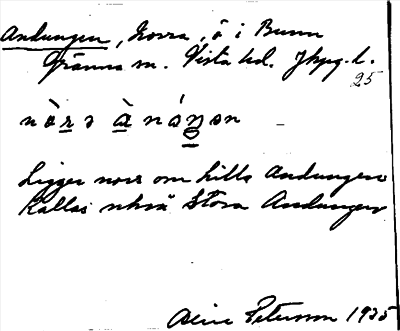 Andungen, Norra, ö i Bunn
Gränna sn. Vista hd. Jkpg. l.
25
nòrə ànáŋən
Ligger norr om Lilla Andungen
Kallas också Stora Andungen
Petersson 1935